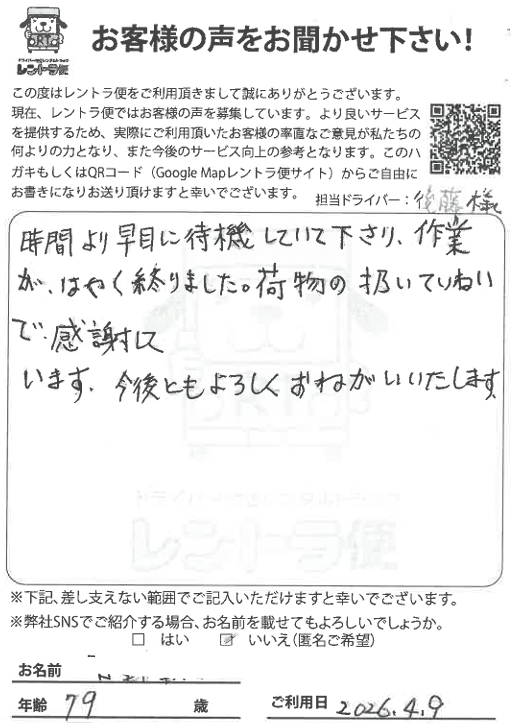 ORTO
ドライバー付レンタルトラック
レントラ便
お客様の声をお聞かせ下さい!
この度はレントラ便をご利用頂きまして誠にありがとうございます。
現在、レントラ便ではお客様の声を募集しています。より良いサービス
を提供するため、実際にご利用頂いたお客様の率直なご意見が私たちの
何よりの力となり、また今後のサービス向上の参考となります。このハ
ガキもしくはQRコード（Google Mapレントラ便サイト）からご自由に
お書きになりお送り頂けますと幸いでございます。
担当ドライバー：後藤様
時間より早目に待機していて下さり、作業
が、はやく終りました。荷物の扱いていねい
で、感謝して
います。今後ともよろしくおねがいいたします。
レントラ便
※下記、差し支えない範囲でご記入いただけますと幸いでございます。
※弊社SNSでご紹介する場合、お名前を載せてもよろしいでしょうか。
□ はい ☑ いいえ(匿名ご希望)
お名前
年齢 79 歳 ご利用日 2026.4.9